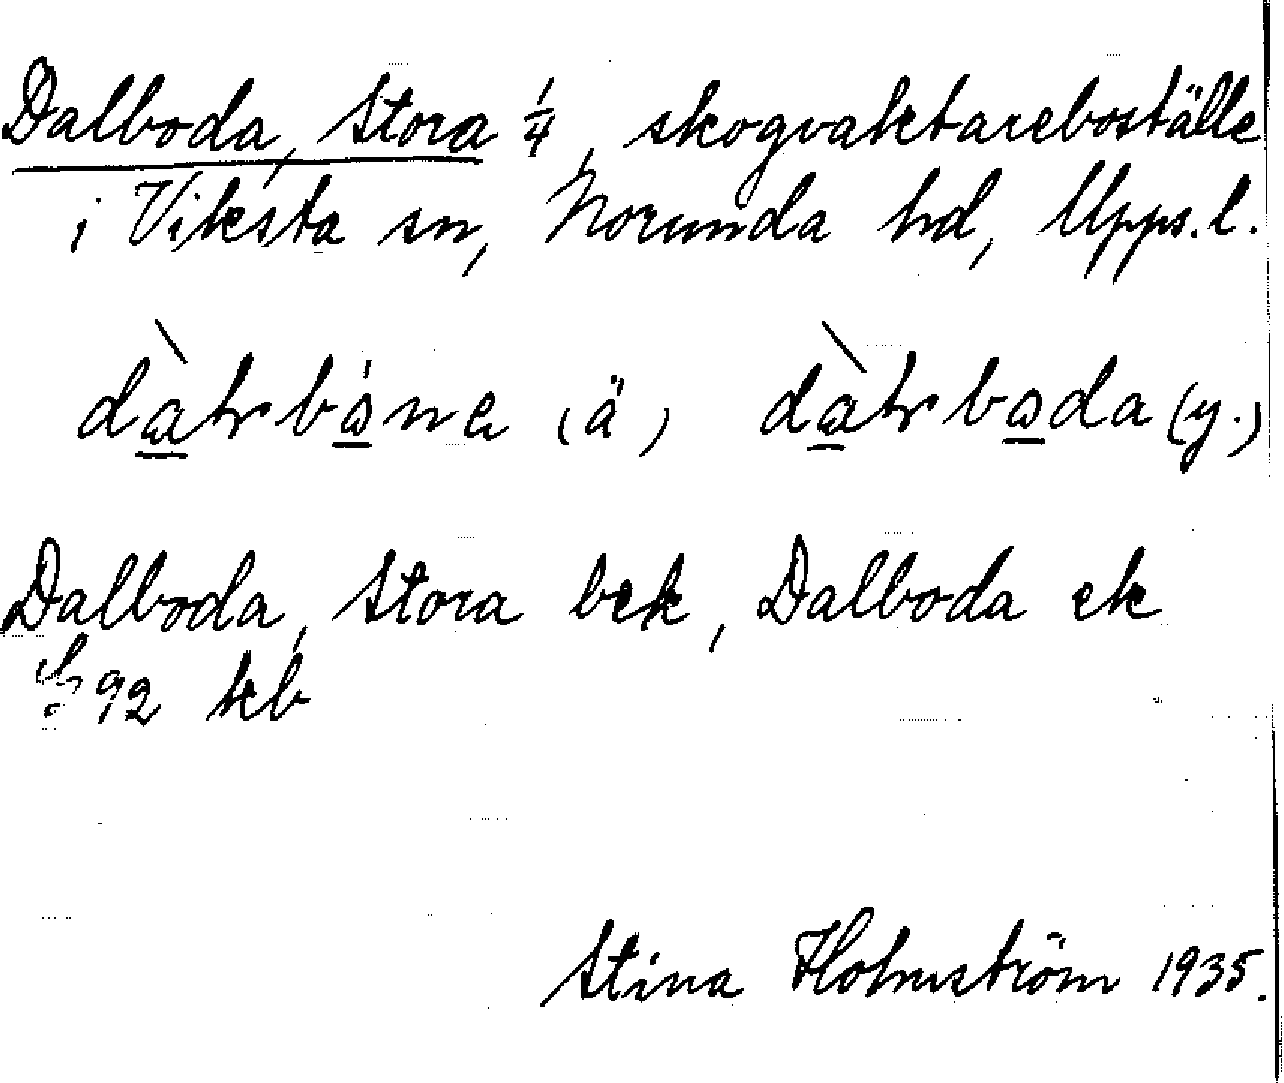 Dalboda, Stora ¼, skogvaktareboställe
i Viksta sn, Norunda hd, Upps. l.
(ä) (y.)
Dalboda, Stora bek, Dalboda ek
92 kb
Stina Holmström 1935.